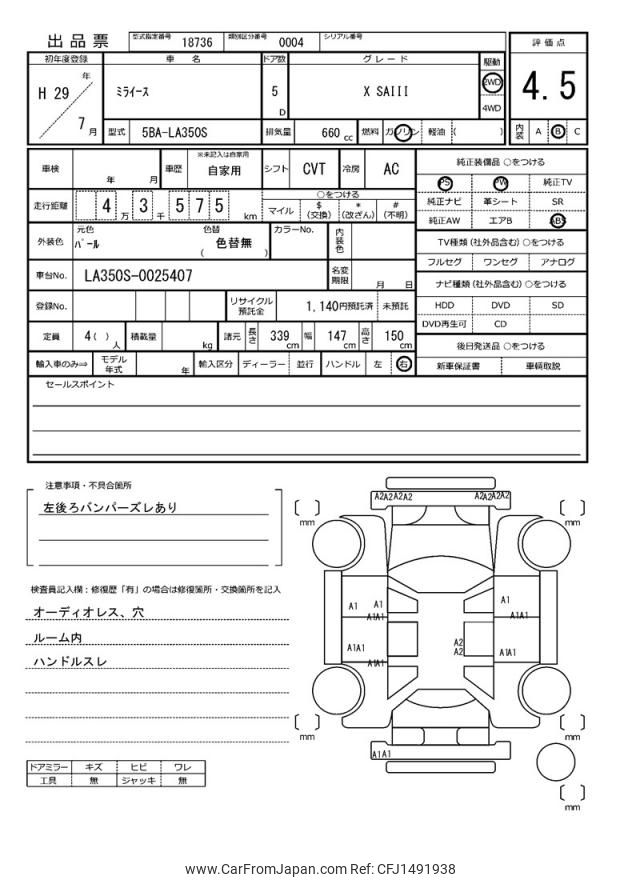 出品票 型式指定番号 18736 類別区分番号 0004 シリアル番号
評価点
4.5
内装 A B C
初年度登録 車名 ドア数 グレード 駆動
H 29 年 7 月
ミライース 5 D X SAIII 2WD 4WD
型式 5BA-LA350S 排気量 660 cc 燃料 ガソリン 軽油 ( )
車検 年 月 車歴 ※未記入は自家用 自家用 シフト CVT 冷房 AC
走行距離 4 万 3 千 5 7 5 km
○をつける
マイル $ (交換) * (改ざん) # (不明)
外装色 元色 パール 色替 ( 色替無 ) カラーNo. 内装色
車台No. LA350S-0025407 名変期限 月 日
登録No. リサイクル預託金 1,140円預託済 未預託
定員 4( ) 人 積載量 kg 諸元 長さ 339 cm 幅 147 cm 高さ 150 cm
輸入車のみ⇒ モデル年式 年 輸入区分 ディーラー 並行 ハンドル 左 右
純正装備品 ○をつける
PS PW 純正TV
純正ナビ 革シート SR
純正AW エアB ABS
TV種類 (社外品含む) ○をつける
フルセグ ワンセグ アナログ
ナビ種類 (社外品含む) ○をつける
HDD DVD SD
DVD再生可 CD
後日発送品 ○をつける
新車保証書 車輌取説
セールスポイント
注意事項・不具合箇所
左後ろバンパーズレあり
検査員記入欄：修復歴「有」の場合は修復箇所・交換箇所を記入
オーディオレス、穴
ルーム内
ハンドルスレ
ドアミラー キズ ヒビ ワレ
工具 無 ジャッキ 無
A2A2A2A2 A2A2A2A2
mm mm
A1 A1 A1
A1A1 A1A1
A1A1 A2 A2 A1A1
A1A1
mm mm
A1A1
mm
www.CarFromJapan.com Ref: CFJ1491938